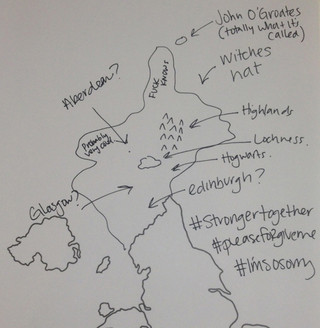 John O'Groates
(totally what it's
called)
witches
hat
FUCK
KNOWS
Aberdean?
Highlands
Probably
very cold
Lochness.
Hogwarts.
edinburgh?
Glasgow?
#Strongertogether
#pleaseforgiveme
#I'msosorry